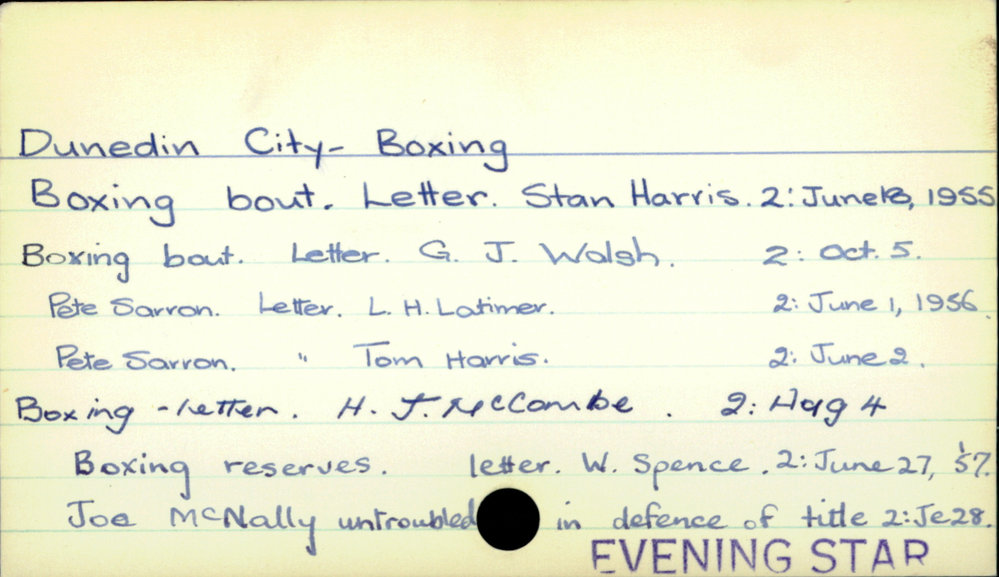 Dunedin City- Boxing
Boxing bout. Letter. Stan Harris. 2: June 18, 1955
Boxing bout. Letter. G. J. Walsh. 2: Oct. 5.
Pete Sarron. Letter. L. H. Latimer. 2: June 1, 1956.
Pete Sarron. " Tom Harris. 2: June 2.
Boxing - letter. H. J. McCombe. 2: Aug 4
Boxing reserves. letter. W. Spence. 2: June 27, '57.
Joe McNally untroubled in defence of title 2: Je 28.
EVENING STAR